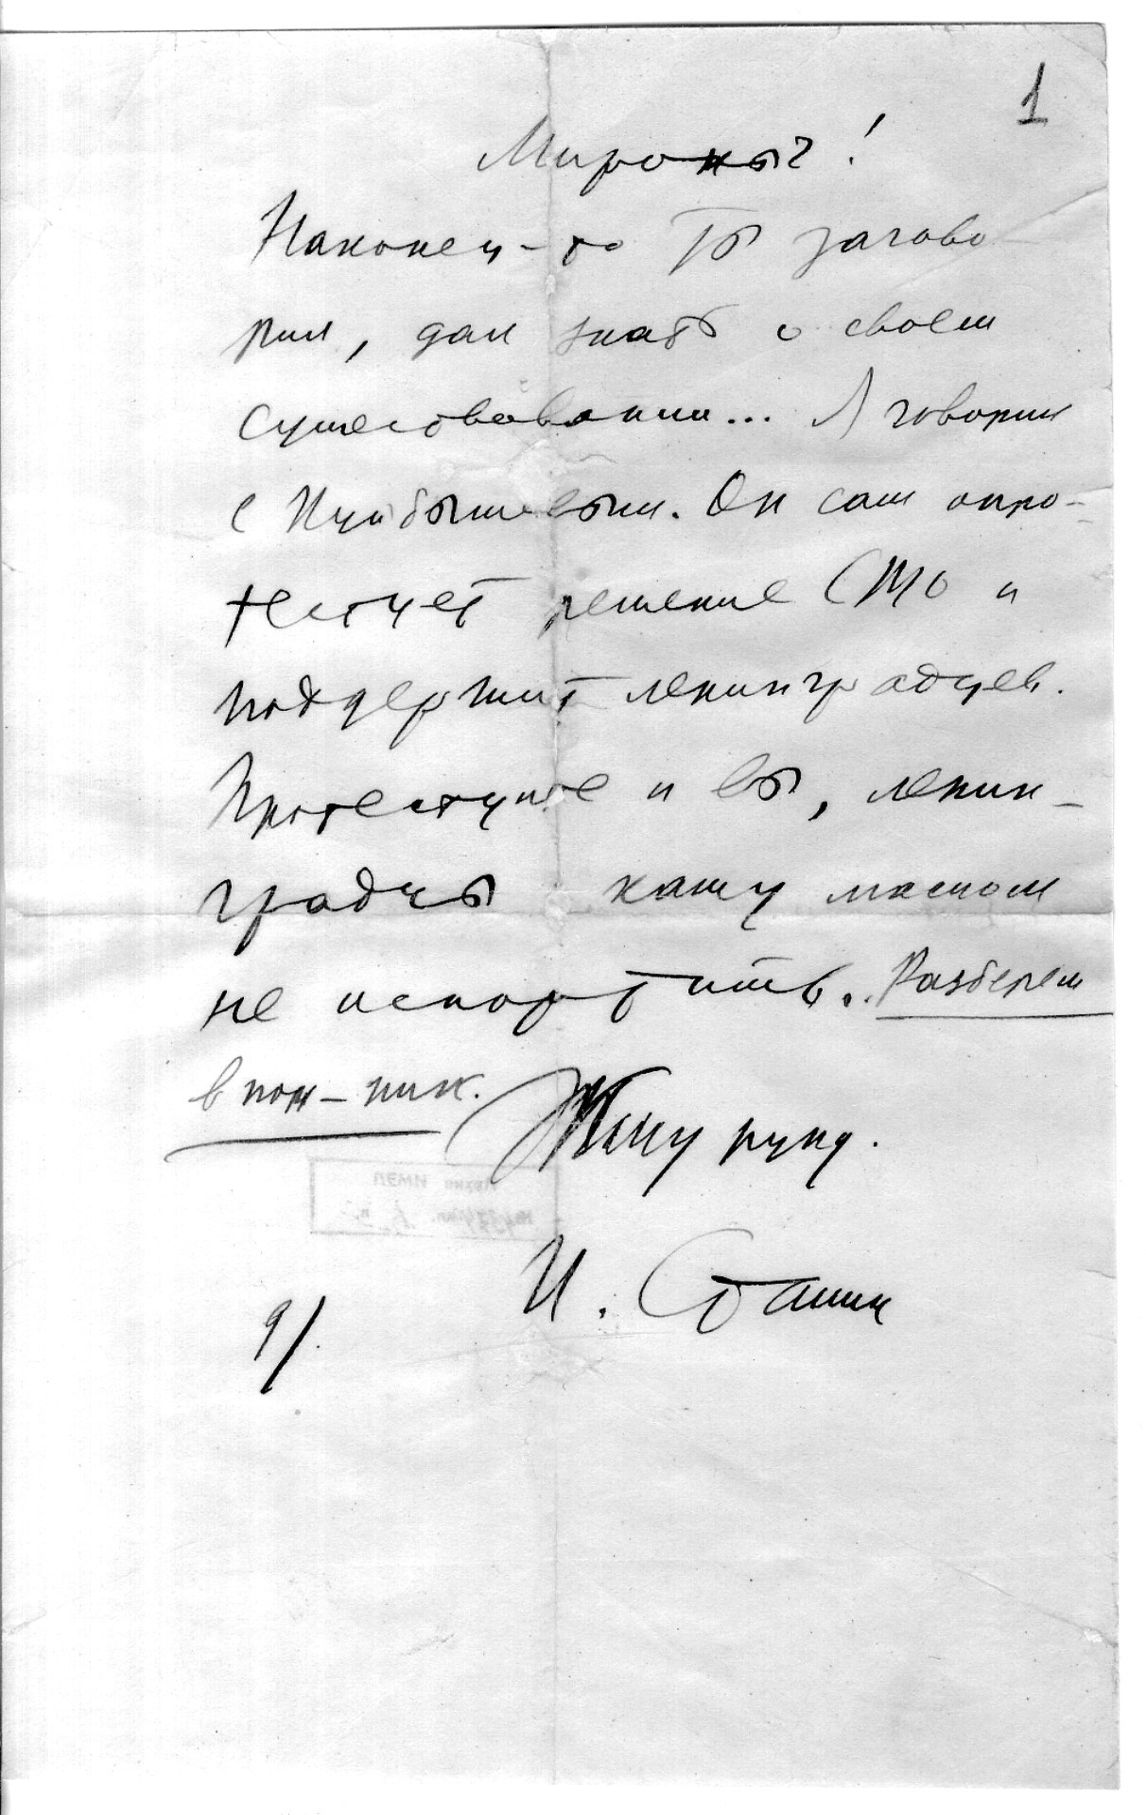 1
Мироныч!
Наконец-то ты загово-
рил, дал знать о своем
существовании... Я говорил
с Куйбышевым. Он сам опро-
тестует решение СТО и
поддержит ленинградцев.
Протестуйте и вы, ленин-
градцы кашу маслом
не испортить. Разберем
в пон-ник. Жму руку.
И. Сталин
9/